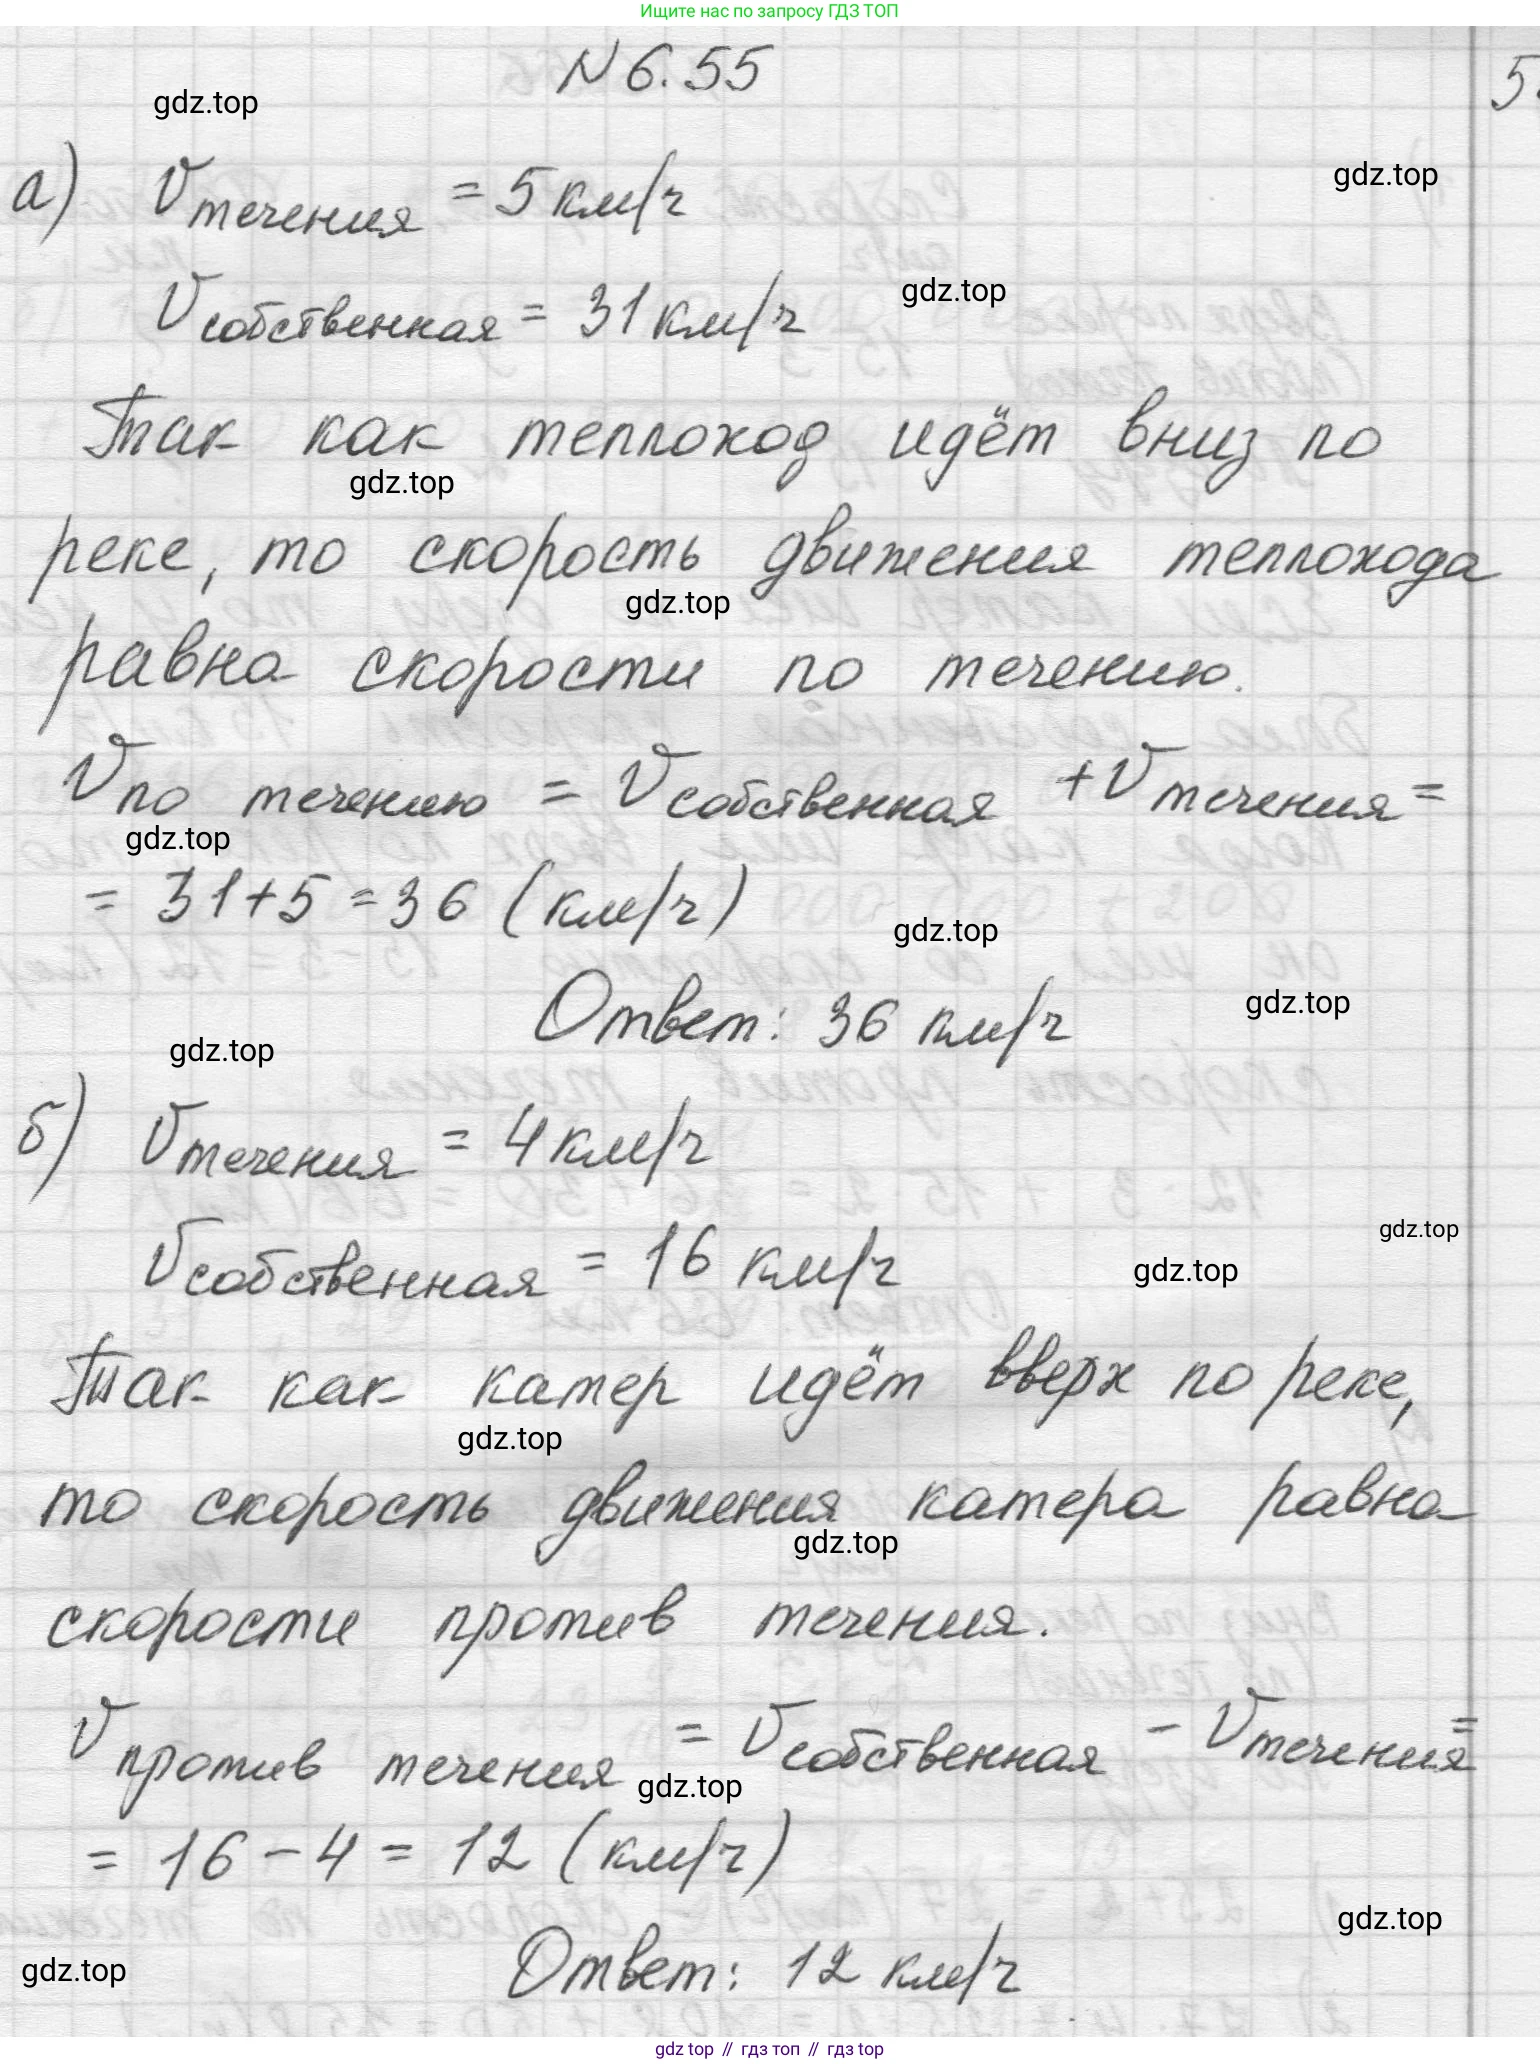 Ищите нас по запросу ГДЗ ТОП
N 6.55
5.
gdz.top
а) Vтечения = 5 км/ч
gdz.top
Vсобственная = 31 км/ч
gdz.top
Так как теплоход идёт вниз по
gdz.top
реке, то скорость движения теплохода
gdz.top
равна скорости по течению.
Vпо течению = Vсобственная + Vтечения =
gdz.top
= 31+5 = 36 (км/ч)
gdz.top
Ответ: 36 км/ч
gdz.top
gdz.top
б) Vтечения = 4 км/ч
gdz.top
Vсобственная = 16 км/ч
gdz.top
Так как катер идёт вверх по реке,
gdz.top
то скорость движения катера равна
gdz.top
скорости против течения.
Vпротив течения = Vсобственная - Vтечения =
gdz.top
= 16 - 4 = 12 (км/ч)
gdz.top
Ответ: 12 км/ч
gdz.top
gdz.top // гдз топ // гдз top